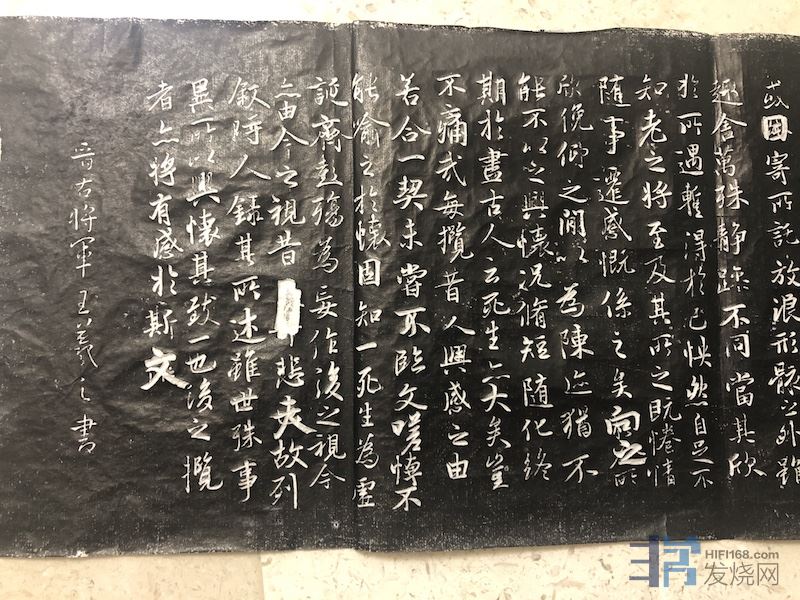 或因寄所託放浪形骸之外雖
趣舍萬殊静躁不同當其欣
於所遇暫得於己怏然自足不
知老之将至及其所之既惓情
随事遷感慨係之矣向之所
欣俛仰之閒以為陳迹猶不
能不以之興懷況脩短随化終
期於盡古人云死生亦大矣豈
不痛哉每攬昔人興感之由
若合一契未嘗不臨文嗟悼不
能喻之於懷固知一死生為虚
誕齊彭殤為妄作後之視今
亦由今之視昔 悲夫故列
叙時人録其所述雖世殊事
異所以興懷其致一也後之攬
者亦将有感於斯文
晉右将軍王羲之書
HIFI168.com
发烧网